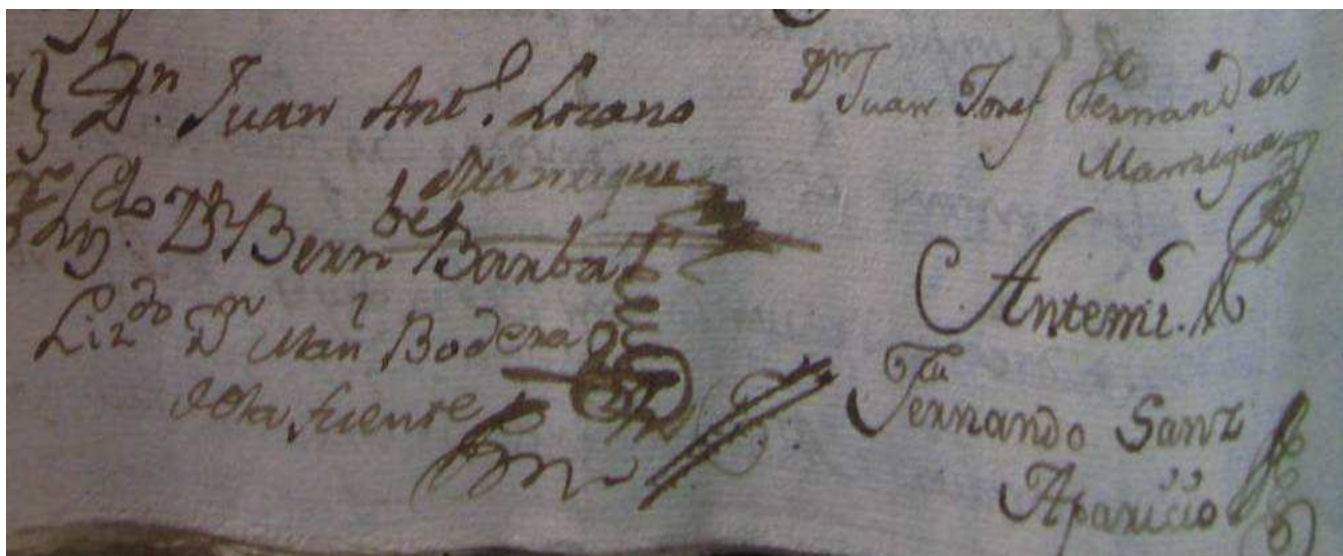 Dn. Juan Antº. Lozano
Manrique
Lizdo. Dn Bernbe Barba
Lizdo Dn Manl Bodega
dela fuente
Dn Juan Josef Fernandez
Manrique
Antemi.
Fernando Sanz
Aparicio